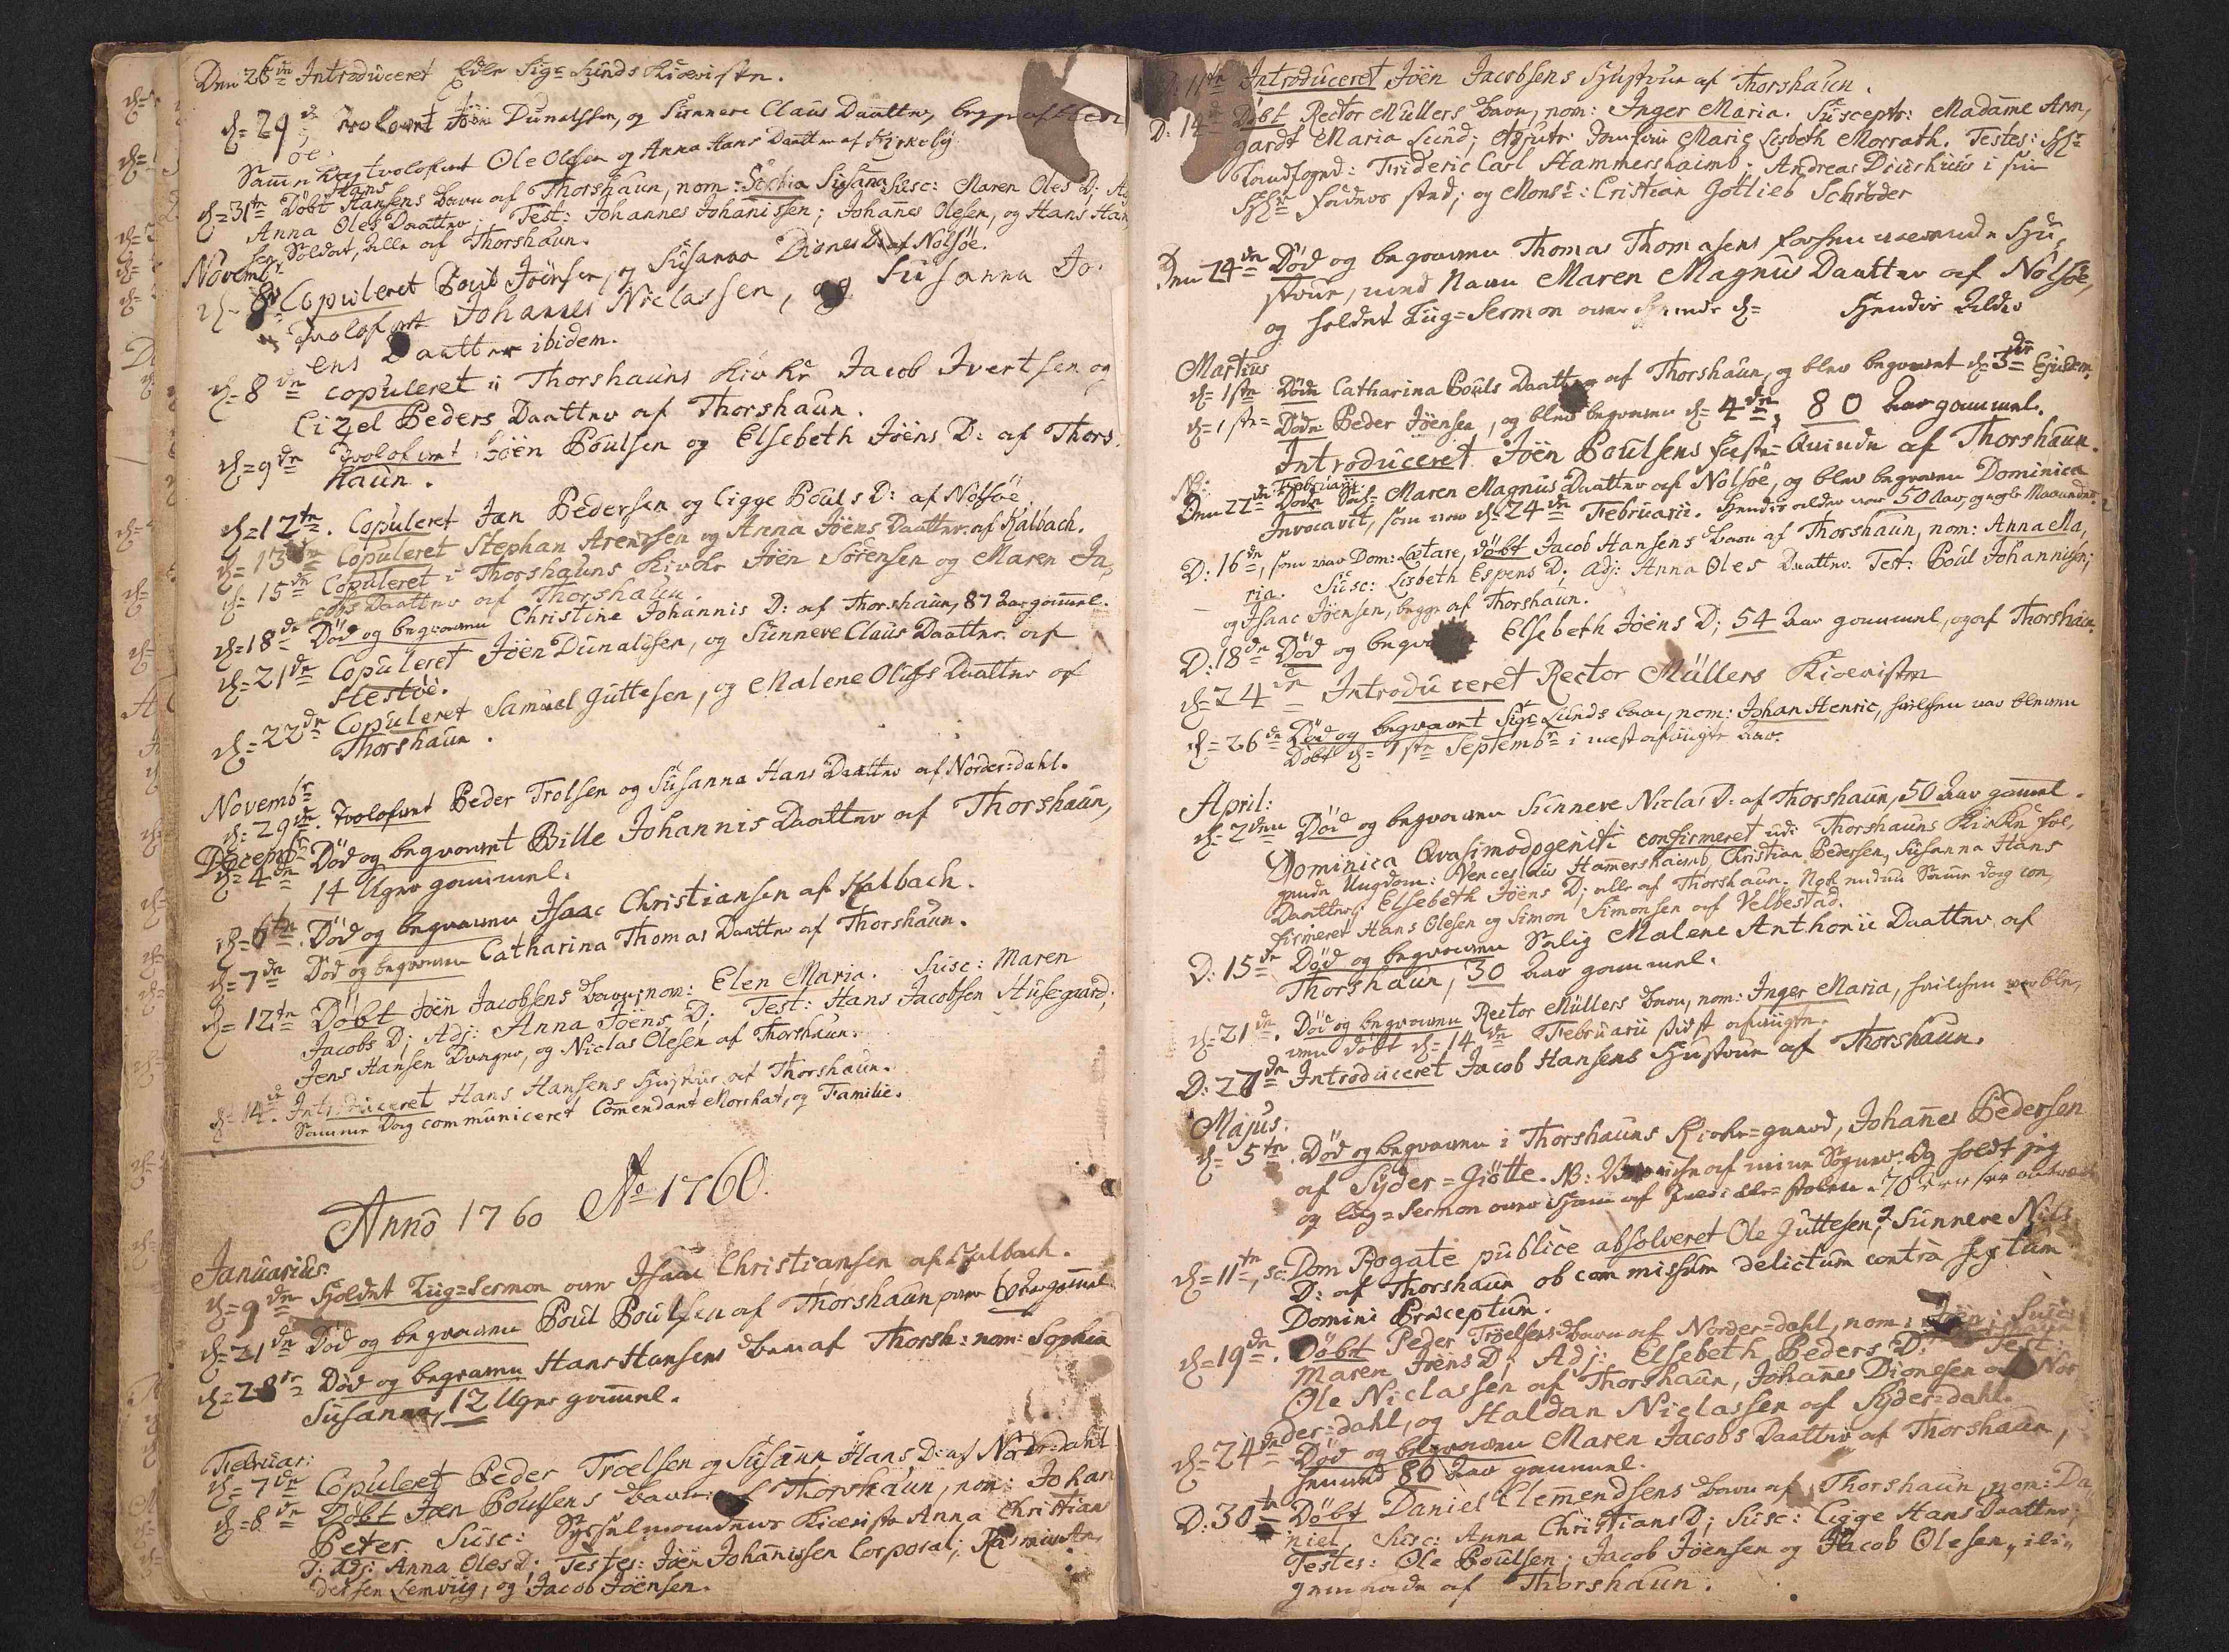 Den 26de Introduceret Edle Sigr Lunds Kieriste.
d= 29de, trolovet Jöen Dunalssen, og Sunneve Claus Daatter, begge af Hest
öe.
Samme Dag trolofvet Ole Olesen og Anna Hans Daatter af Kirkebÿ
d= 31te Döbt Hans Hansens Barn af Thorshaun, nom: Sophia Susanna Susc: Maren Oles D: Adj:
Anna Oles Daatter; Test: Johannes Johanissen; Johanes Olesen, og Hans Han
sen Soldat, alle af Thorshaun.
Novembr
d= 8de Copuleret Poul Joensen, og Susanna Diones D: af Nolsöe.
Trolofvet Johannes Niclassen, og Susanna Jo
ens Daatter ibidem.
d= 8de copuleret i Thorshauns Kirke Jacob Ivertsen og
Cizel Peders Daatter af Thorshaun.
d= 9de Trolofvet Jöen Poulsen og Elsebeth Jöens D: af Thors
haun.
d= 12te. Copuleret Jan Pedersen og Ligge Pouls D: af Nolsöe.
d= 13de Copuleret Stephan Arentsen og Anna Jöens Daatter af Kalbach.
d= 15de Copuleret i Thorshauns Kirke Jöen Sörensen og Maren Ja
cobs Daatter af Thorshaun.
d= 18de Död og begraven Christine Johannis D: af Thorshaun, 87 Aar gammel.
d= 21de Copuleret Jöen Dunaldsen, og Sunneve Claus Daatter af
Hestöe.
d= 22de Copuleret Samuel Guttesen, og Malene Olufs Daatter af
Thorshaun.
Novembr
d: 29de. Trolofvet Peder Trolsen og Susanna Hans Daatter af Norder=dahl.
Decembr
d= 4de Död og begravet Bille Johannis Daatter af Thorshaun,
14 Uger gammel.
d= 6te. Död og begraven Isaac Christiansen af Kalbach.
d= 7de Död og begraven Catharina Thomas Daatter af Thorshaun.
d= 12te Döbt Jöen Jacobsens Barn, nom: Elen Maria. Susc: Maren
Jacobs D; Adj: Anna Jöens D; Test: Hans Jacobsen Husegaard;
Jens Hansen Dreyer, og Niclas Olesen af Thorshaun.
d= 14de. Introduceret Hans Hansens Hustrue af Thorshaun.
Samme Dag communiceret Comendant Morshat, og Familie.
Anno 1760 Ao 1760.
Januarius:
d= 9de Holdet Liig=Sermon over Isaac Christiansen af Kalbach.
d= 21de Död og begraven Poul Poulsen af Thorshaun, over 60 Aar gammel
d= 28de Död og begraven Hans Hansens Barn af Thorsh: nom: Sophia
Susanna, 12 Uger gammel.
Februar:
d= 7de Copuleret Peder Troelsen og Susann Hans D: af Norder=dahl
d= 8de Döbt Jöen Poulsens Barn af Thorshaun, nom: Johan
Peter. Susc: Sysselmandens Kieriste Anna Christians
D: Adj: Anna Oles D; Testes: Jöen Johannissen Corporal; Rasmus An
dersen Lemvig, og Jacob Jöensen.
D: 11te Introduceret Jöen Jacobsens Hustrue af Thorshaun.
D: 14de Döbt Rector Müllers Barn, nom: Inger Maria. Suscept: Madame Arm,
gardt Maria Lund; Adjutr: Jomfrue Marie Lisbeth Morrath. Testes: Hr
Landfoged: Frideric Carl Hammershaimb. Andreas Diurhuus i sin
Hr Faders sted; og Monsr: Cristian Gotlieb Schröder
Den 24de Död og begraven Thomas Thomasens forhen værende Hu
strue, ved Navn Maren Magnus Daatter af Nolsöe,
og holdet Liig=Sermon over hende d= Hendes Alder
Martius
d= 1ste Döde Catharina Pouls Daatter af Thorshaun, og blev begravet d= 3de Ejusdem.
d= 1ste= Döde Peder Jöensen, og blev begraven d= 4de, 80 Aar gammel.
Introduceret Jöen Poulsens Feste=Quinde af Thorshaun.
NB: Februarii
Den 22de Döde Sal= Maren Magnus Daatter af Nolsöe, og blev begraven Dominica
Invocavit, som var d= 24de Februarii. Hendes alder var 50 Aar, og nogle Maaneder.
D: 16de, som var Dom: Lætare, döbt Jacob Hansens Barn af Thorshaun, nom: Anna Ma,
ria. Susc: Lisbeth Espens D; Adj: Anna Oles Daatter. Test: Poul Johannissen;
og Isaac Jöensen, begge af Thorshaun.
D: 18de Död og begra Elsebeth Jöens D; 54 Aar gammel, og af Thorshaun.
d= 24de Introduceret Rector Müllers Kieriste
d= 26de Död og begravet Sigr Lunds Barn, nom: Johan Henric, hvilken var bleven
Döbt d= 1ste Septembr i næst afvigte Aar.
April:
d= 2den Död og begraven Sunneve Niclas D: af Thorshaun, 50 Aar gammel.
Dominica Qvasimodogeniti confirmeret udi Thorshauns Kirke föl,
gende Ungdom: Venceslaus Hammershaimb, Christian Pedersen, Susanna Hans
Daatter; Elsebeth Jöens D; alle af Thorshaun. Nok endnu Samme dag con,
firmeret Hans Olesen og Simon Simonsen af Velbestad.
D: 15de Död og begraven Salig Malene Anthonii Daatter af
Thorshaun, 30 Aar gammel.
d= 21de. Död og begraven Rector Müllers Barn, nom: Inger Maria, hvilken var ble,
ven döbt d= 14de Februarii sidst afvigte.
D: 27de Introduceret Jacob Hansens Hustrue af Thorshaun.
Majus.
d= 5te. Död og begraven i Thorshauns Kirke=gaard, Johanes Pedersen
af Syder=Giötte. NB: af mine Sogner. Og holdt jeg
og Liig=Sermon over Ham af Prædike=stolen. 70
d= 11te, sc: Dom Rogate publice absolveret Ole Guttesen, & Sunneve Nicl
D: af Thorshaun ob commissum delictum contra sextum
Domini Præceptum.
d= 19de. Döbt Peder Troelsens Barn af Norder=dahl, nom: Jöen; Susc:
Maren Jöens D; Adj: Elsebeth Peders D: Test:
Ole Niclassen af Thorshaun, Johanes Dionesen af Nor
der=dahl, og Haldan Niclassen af Syder=dahl.
d= 24de Död og begraven Maren Jacobs Daatter af Thorshaun,
henved 80 Aar gammel.
D: 30te Döbt Daniel Clemendsens Barn af Thorshaun, nom: Da
niel Susc: Anna Christians D; Susc: Ligge Hans Daatter;
Testes: Ole Poulsen; Jacob Jöensen og Jacob Olesen, ili,
gemaade af Thorshaun.